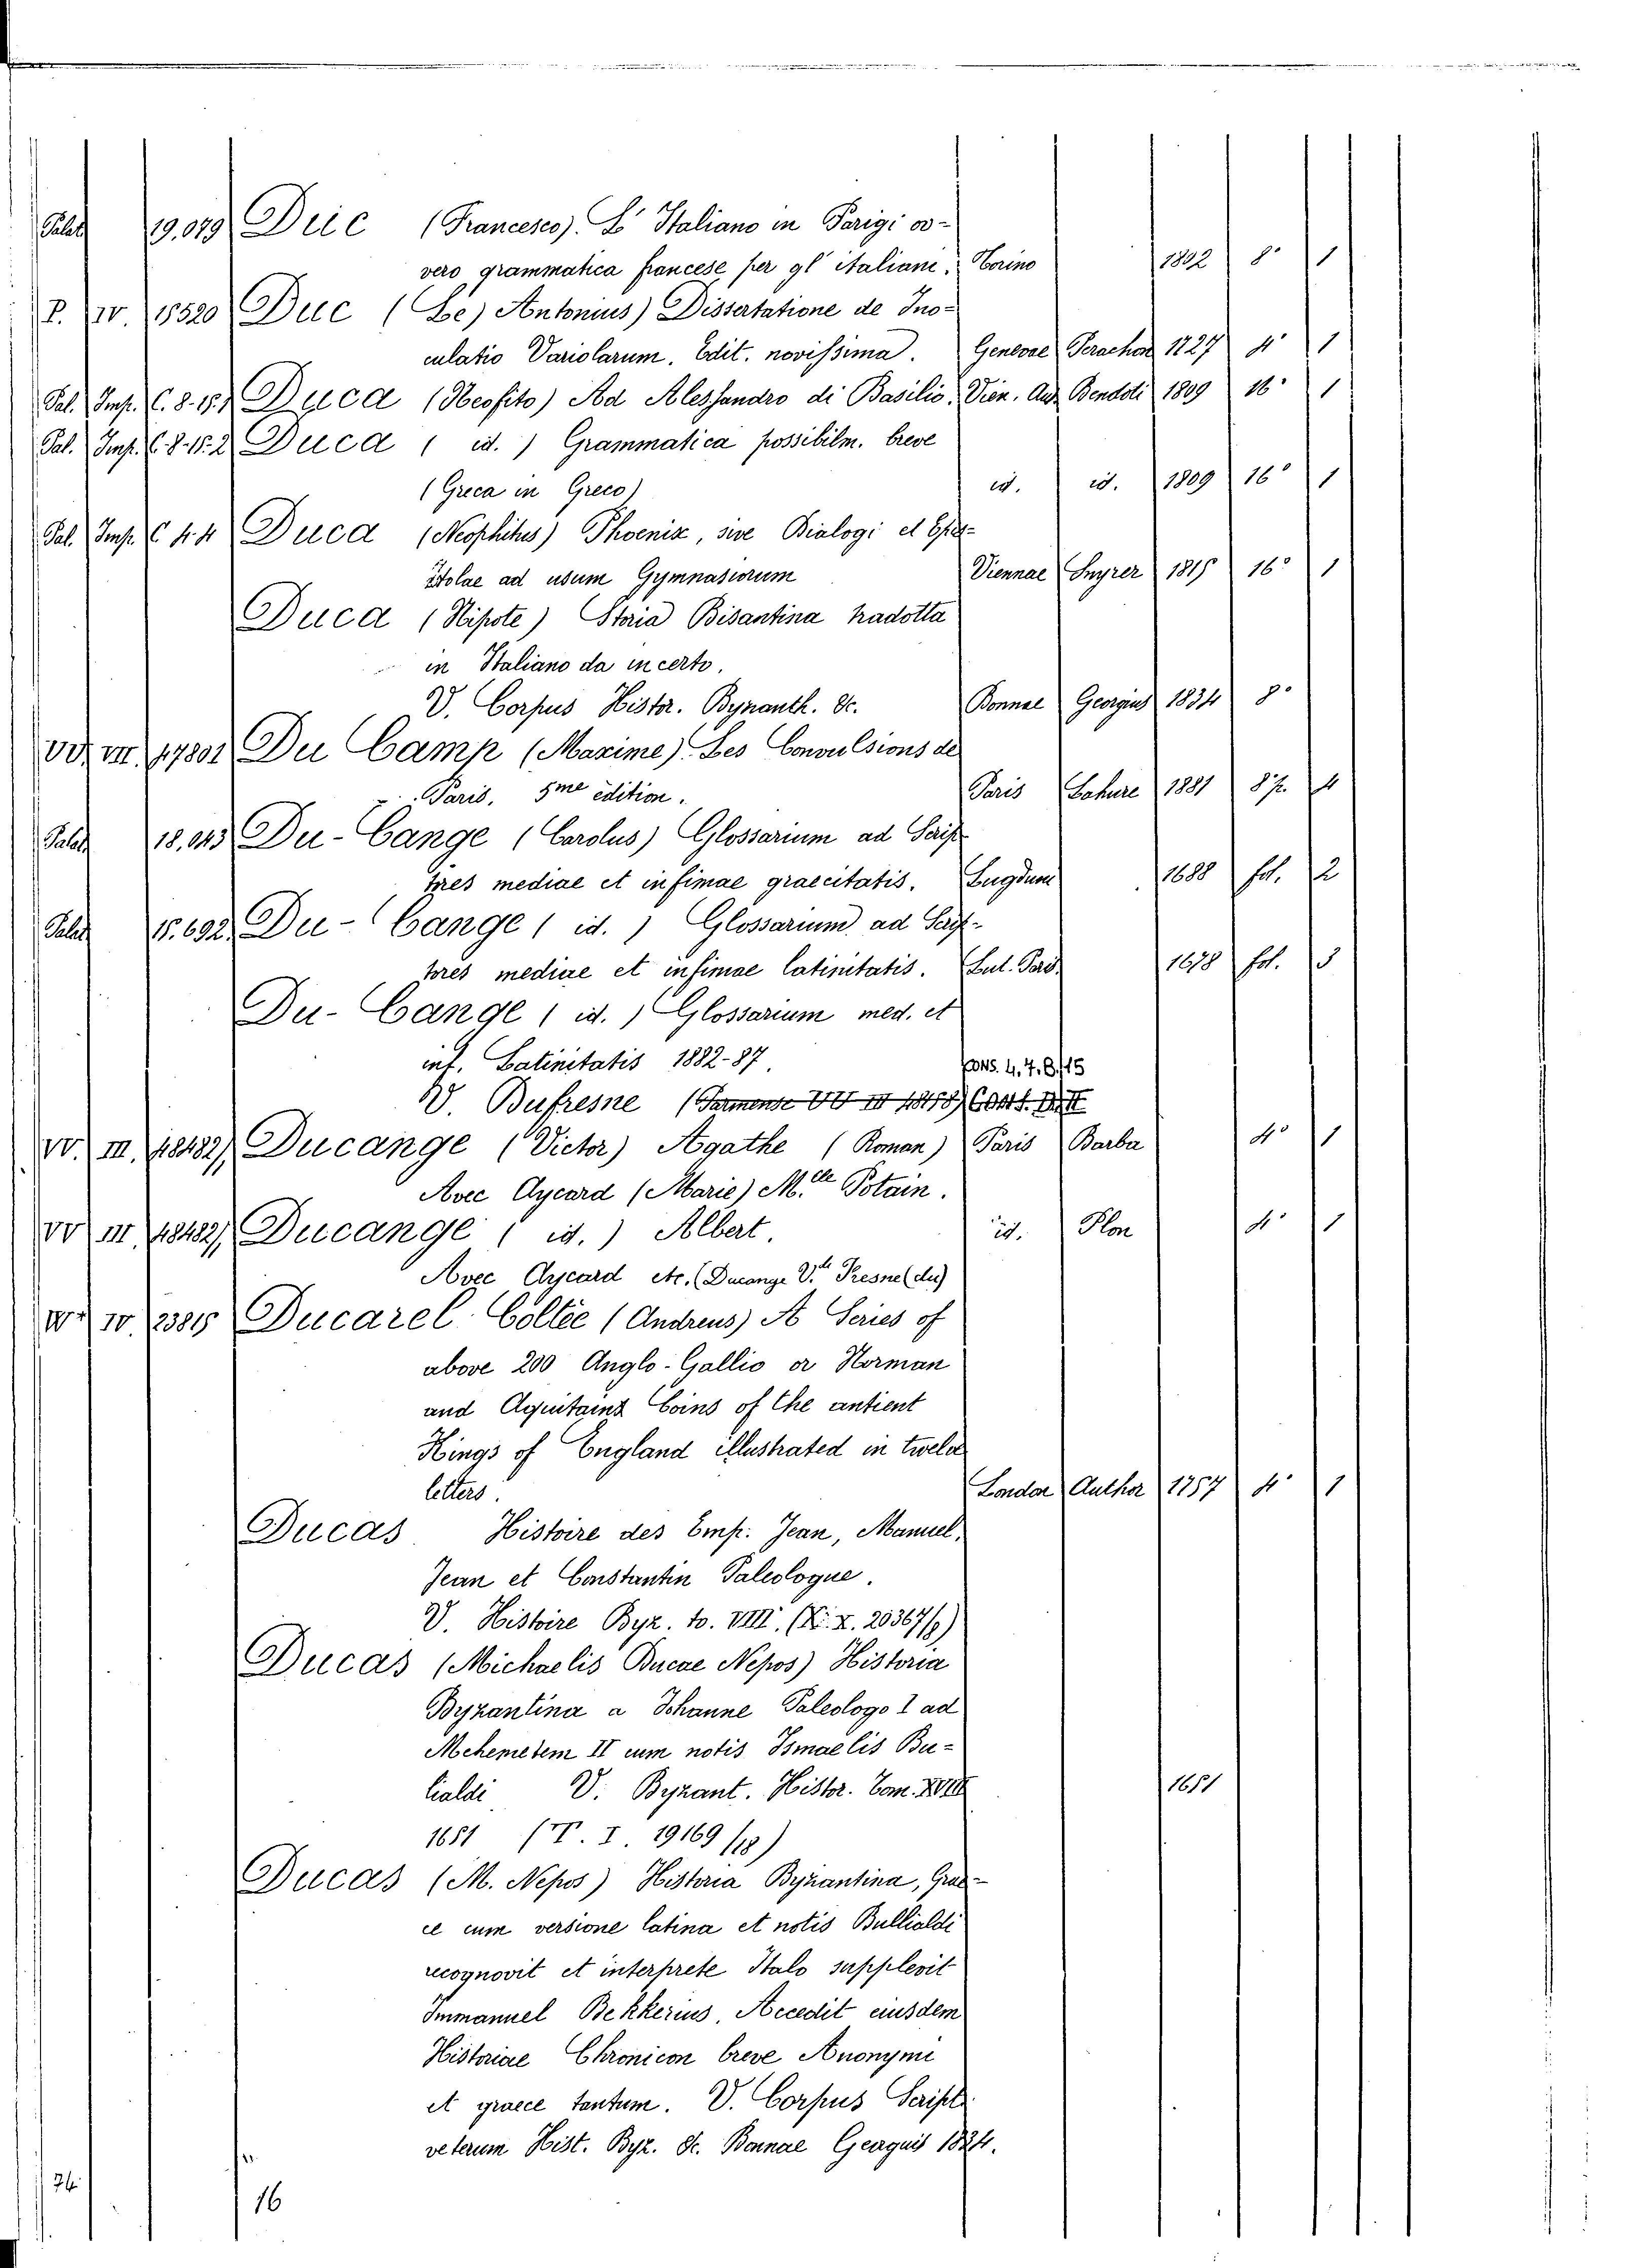 Palat 19.079 Duc (Francesco). L' Italiano in Parigi ov-
vero grammatica francese per gl' italiani. Torino 1802 8° 1
P. IV 15520 Duc (Le) Antonius) Dissertatione de Ino-
culatio Variolarum. Edit. novissima. Genevae Perachon 1727 4° 1
Pal. Imp. C. 8. 15.1 Duca (Neofito) Ad Alessandro di Basilio. Vien. Aus Bendoti 1809 16° 1
Pal. Imp. C. 8. 15. 2 Duca ( id. ) Grammatica possibilm. breve
(Greca in Greco) id. id. 1809 16° 1
Pal. Imp. C 4. 4 Duca (Neophitus) Phoenix, sive Dialogi et Epi-
stolae ad usum Gymnasiorum Viennae Snyrer 1815 16° 1
Duca (Nipote) Storia Bisantina tradotta
in Italiano da incerto.
V. Corpus Histor. Bynanth. &c. Bonnae Georgius 1834 8°
VV. VII. 47801 Du Camp (Maxime) Les Convulsions de
Paris, 5me edition. Paris Lahure 1881 8 p. 4
Palat 18.043 Du-Cange (Carolus) Glossarium ad Scrip-
tores mediae et infimae graecitatis. Lugduni 1688 fol. 2
Palat 15.692. Du-Cange ( id. ) Glossarium ad Scrip-
tores mediae et infimae latinitatis. Lut. Paris. 1678 fol. 3
Du-Cange ( id. ) Glossarium med. et
inf. Latinitatis 1882-87. CONS. 4, 7, 8, 15
V. Dufresne (Parmense VV III 48158)
VV. III. 48482) Ducange (Victor) Agathe (Roman) Paris Barba 4° 1
Avec Aycard (Marie) M.lle Potain.
VV III 48482) Ducange ( id. ) Albert. id. Plon 4° 1
Avec Aycard etc. (Ducange V.te Fresne (du)
IV 23815 Ducarel Coltée (Andreus) A Series of
above 200 Anglo-Gallic or Norman
and Aquitaine Coins of the antient
Kings of England illustrated in twelve
letters. London Author 1757 4° 1
Ducas Histoire des Emp. Jean, Manuel,
Jean et Constantin Paleologue.
V. Histoire Byz. to. VIII. (X. X. 20367/8)
Ducas (Michaelis Ducae Nepos) Historia
Byzantina a Johanne Paleologo I ad
Mehemetem II cum notis Ismaelis Bu-
lialdi V. Byzant. Histor. Tom. XVIII 1651
1651 (T. I. 19169/18)
Ducas (M. Nepos) Historia Bynantina, Grae-
ce cum versione latina et notis Bullialdi
recognovit et interprete Italo supplevit
Immanuel Bekkerius. Accedit eiusdem
Historiae Chronicon breve Anonymi
et graece tantum. V. Corpus Script.
veterum Hist. Byz. &c. Bonnae Georgius 1834.
76
16